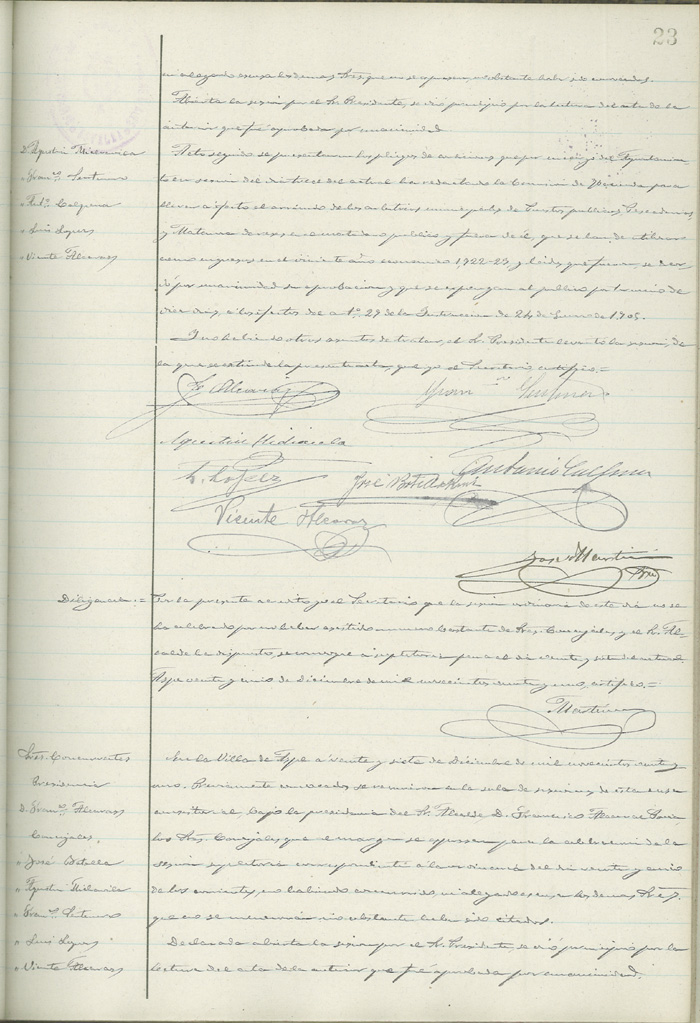 23
ni alegado escusa los demas Sres. que no se espresan, no obstante haber sido convocados.
Abierta la sesion por el Sr. Presidente, se dió principio por la lectura del acta de la
anterior que fué aprobada por unanimidad.
D. Agustin Mirambell
" Franco.
" Anto.
" Luis Lopez
" Vicente Alcaraz
Acto seguido se presentaron los pliegos de condiciones que por encargo del Ayuntamien-
to en sesion del dia trece del actual ha redactado la Comision de Hacienda para
llevar á efecto el arriendo de los arbitrios municipales de Puestos publicos, Pescaderia
y Matanza de reses en el matadero publico y fuera de él, que se han de utilizar
como ingresos en el vicinte año economico 1922-23 y leidos que fueron, se acor-
dó por unanimidad su aprobacion y que se espongan al publico por termino de
diez dias, á los efectos del arto. 29 de la Instruccion de 24 de Enero de 1905.
Y no habiendo otros asuntos de tratar, el Sr. Presidente levantó la sesion, de
la que se estiende la presente acta, que yo el Secretario certifico.=
F. Alcaraz
Franco.
Agustin
L. Lopez
José Botella
Antonio
Vicente Alcaraz
José Martinez
Srio
Diligencia.=
Por la presente acredito yo el Secretario que la sesion ordinaria de este dia no se
ha celebrado por no haber asistido numero bastante de Sres. Concejales, y el Sr. Al-
calde ha dispuesto, se convoque á supletoria para el dia veinte y siete del actual.
Aspe veinte y cinco de Diciembre de mil novecientos veinte y uno, certifico.=
Martinez
Sres. Concurrentes
Presidencia
D. Franco. Alcaraz
Concejales.
" José Botella
" Agustin
" Franco.
" Luis Lopez
" Vicente Alcaraz
En la Villa de Aspe á veinte y siete de Diciembre de mil novecientos veinte y
uno. Previamente convocados se reunieron en la sala de sesiones de esta casa
consistorial, bajo la presidencia del Sr. Alcalde D. Francisco Alcaraz
los Sres. Concejales que al margen se espresan para la celebracion de la
sesion supletoria correspondiente á la ordinaria del dia veinte y cinco
de los corrientes, no habiendo concurrido, ni alegado escusa los demas Sres.
que no se mencionan no obstante haber sido citados.
Declarada abierta la sesion por el Sr. Presidente, se dió principio por la
lectura del acta de la anterior que fué aprobada por unanimidad.